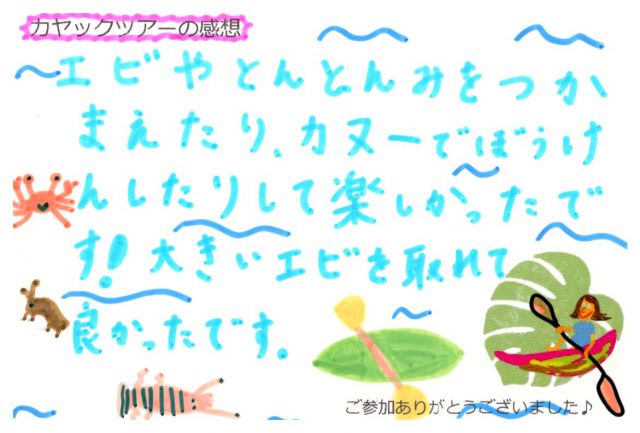 カヤックツアーの感想
エビやとんとんみをつか
まえたり、カヌーでぼうけ
んしたりして楽しかったで
す!大きいエビを取れて
良かったです。
ご参加ありがとうございました♪